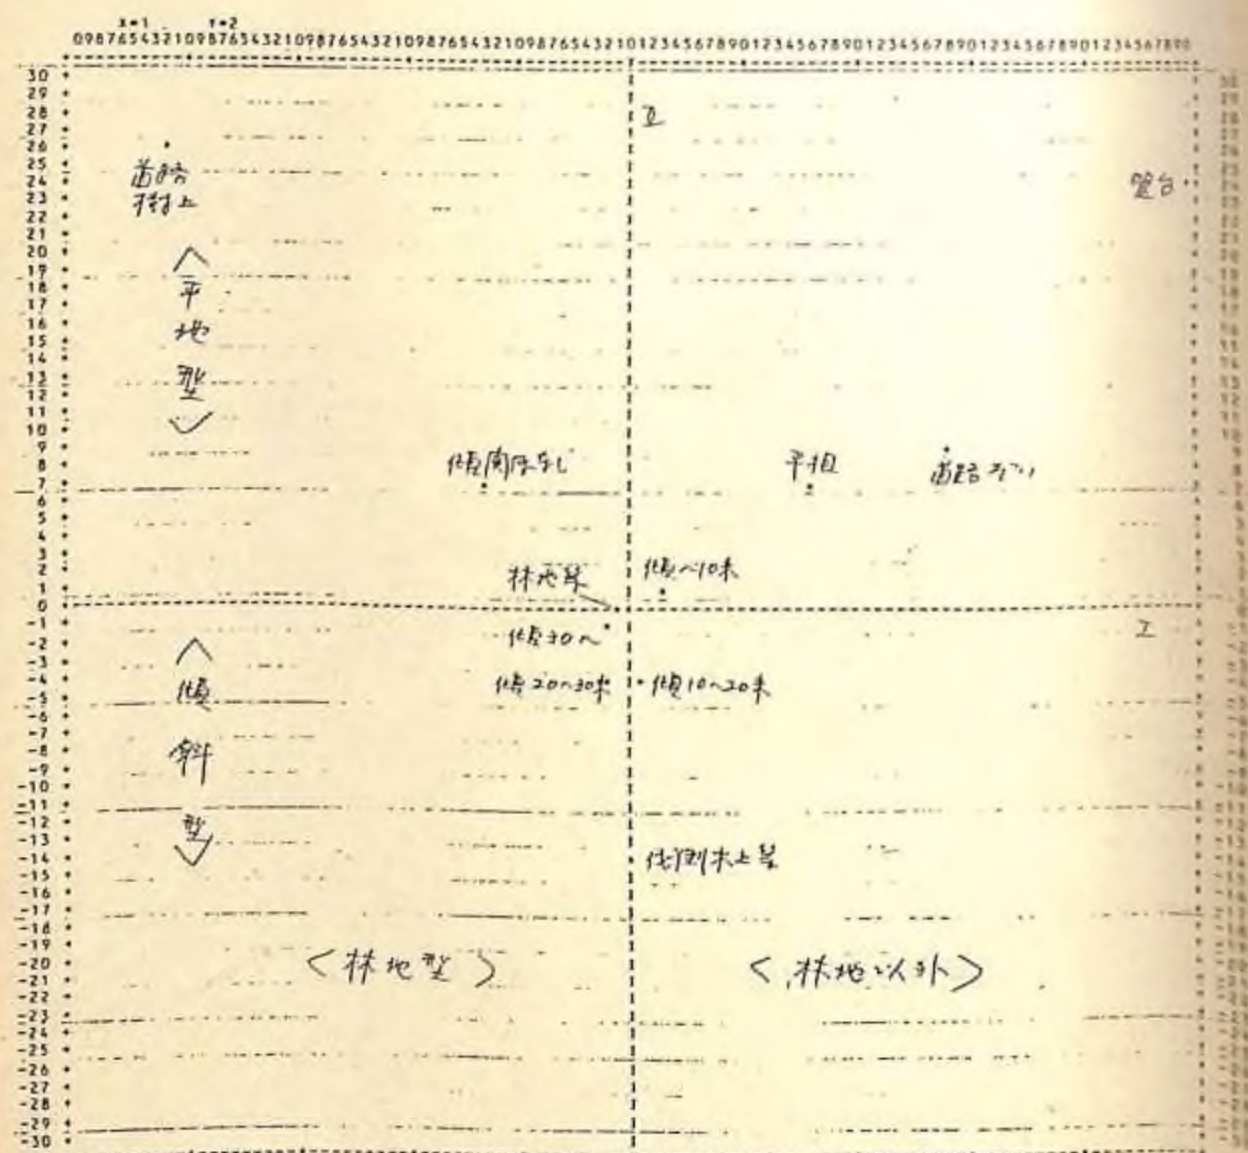 X=1 Y=2
09876543210987654321098765432109876543210987654321012345678901234567890123456789012345678901234567890
30
29
28
27
26
25
24
23
22
21
20
19
18
17
16
15
14
13
12
11
10
9
8
7
6
5
4
3
2
1
0
-1
-2
-3
-4
-5
-6
-7
-8
-9
-10
-11
-12
-13
-14
-15
-16
-17
-18
-19
-20
-21
-22
-23
-24
-25
-26
-27
-28
-29
-30
II
道路
樹上
<平地型>
傾関係なし
平坦
道路ぞい
林地
傾~10未
傾30~
I
傾20~30未
傾10~20未
<傾斜型>
<林地型>
<林地以外>